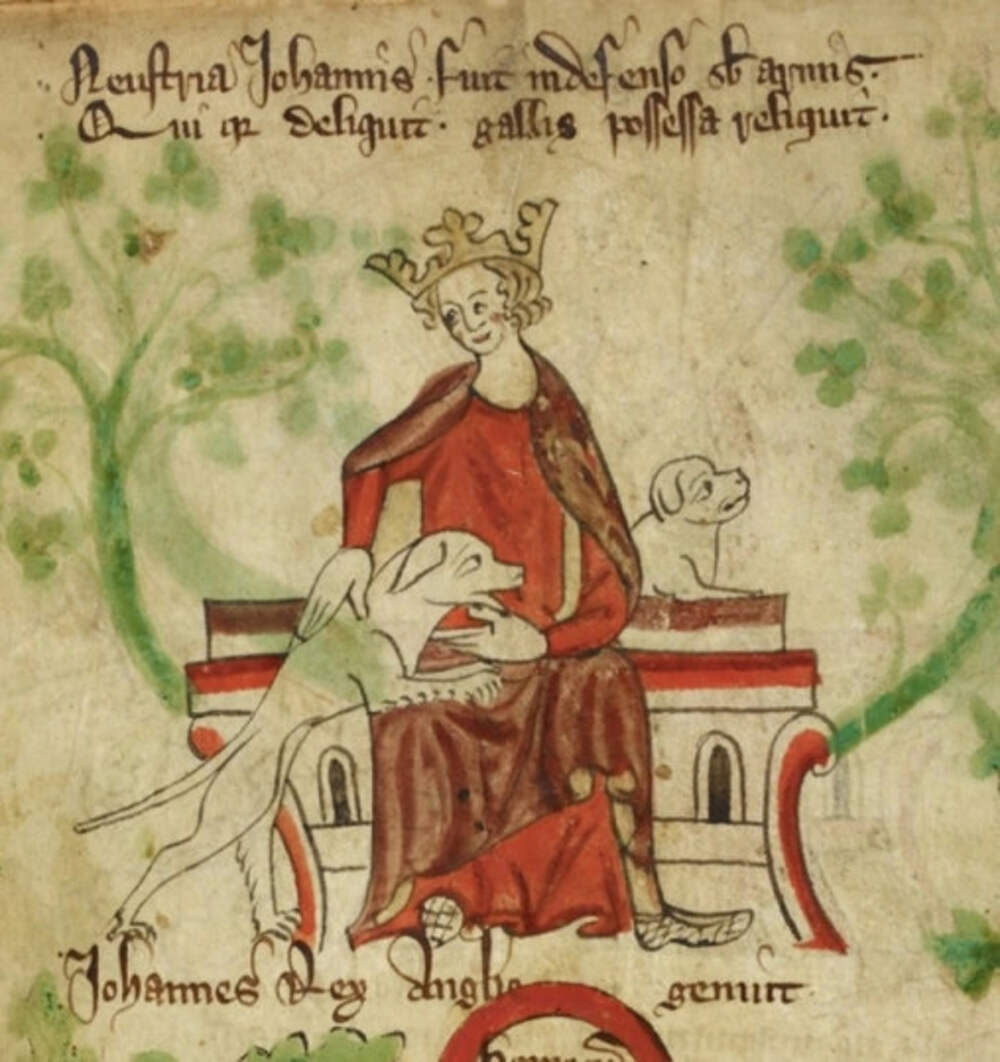 Neustria Johannis · fuit indefenso sb armis ·
Qui deliquit · gallis possessa reliquit ·
Johannes Rex Anglie genuit